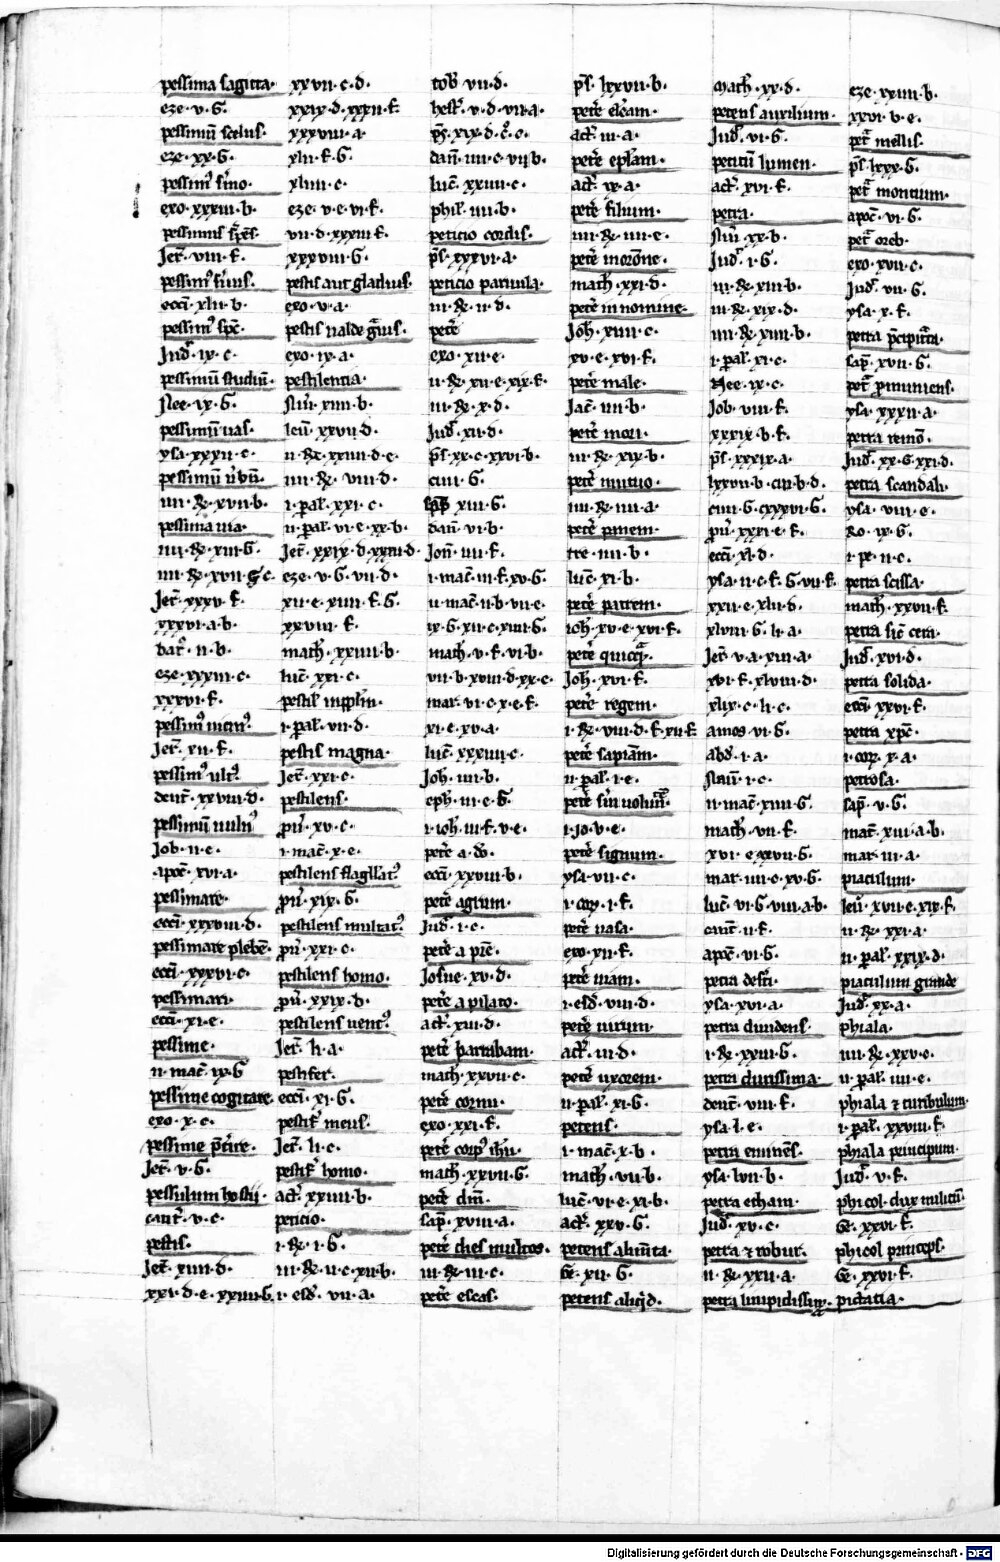 pessima sagitta·
eze·v·G·
pessimū scelus·
eze·xx·G·
pessim9 s̄mo·
exo·xxxiii·b·
pessimus
Jer̄·viii·f·
eccī·xlii·b·
Jud̄·ix·c·
pessimū studiū·
Nee·ix·G·
pessimū uas·
ysa·xxxii·c·
pessimū
iiii·R̄·xvii·b·
pessima uia·
iiii·R̄·xiii·G·
iiii·R̄·xvii·G·c·
Jer̄·xxxv·f·
xxxvi·a·b·
bar̄·ii·b·
eze·xxxiii·c·
xxxvi·f·
Jer̄·xii·f·
deut̄·xxviii·d·
pessimū uuln9
Job·ii·c·
apoc̄·xvi·a·
pessimare·
eccī·xxxviii·d·
pessimare plebē·
eccī·xxxvi·c·
pessimari·
eccī·xi·e·
pessime·
ii·mac̄·ix·G
pessime cogitare·
exo·x·c·
Jer̄·v·G·
pessulum hostij·
cant̄·v·c·
pestis·
Jer̄·xiiii·d·
xxi·d·e·xxiiii·G·
xxvii·c·d·
xxix·d·xxxii·f·
xxxviii·a·
xlii·f·G·
xliiii·c·
eze·v·e·vi·f·
vii·d·xxxiii·f·
xxxviii·G·
pestis aut gladius·
exo·v·a·
pestis ualde g̅uis·
exo·ix·a·
pestilentia·
Nūi·xiiii·b·
leui·xxvi·d·
ii·R̄·xxiiii·d·e·
iiii·R̄·viii·d·
i·pal·xxi·c·
ii·pal·vi·e·xx·b·
Jer̄·xxix·d·xxxii·d·
eze·v·G·vii·d·
xii·e·xiiii·f·G·
xxviii·f·
math·xxiiii·b·
luc̄·xxi·c·
i·pal·vii·d·
pestis magna·
Jer̄·xxi·c·
pestilens·
pu̅·xv·c·
i·mac̄·x·e·
pestilens
pu̅·xix·G·
pestilens
pu̅·xxi·c·
pestilens homo·
pu̅·xxix·b·
pestilens uent9
Jer̄·li·a·
pestifer·
eccī·xi·G·
pestif̄ meus·
Jer̄·li·e·
pestif̄ homo·
act̄·xxiiii·b·
peticio·
i·R̄·i·G·
iii·R̄·ii·c·xii·b·
i·esd̄·vii·a·
tob·vii·d·
hest̄·v·d·vii·a·
dan̄·iiii·c·vij·b·
luc̄·xxiii·c·
phil·iiii·b·
peticio cordis·
p̄s·xxxvi·a·
peticio paruula·
iii·R̄·ii·d·
pet̄e
exo·xii·e·
ii·R̄·xii·e·xix·f·
iii·R̄·x·d·
Jud̄·xii·d·
p̄s·xx·c·xxvi·b·
ciiii·G·
xiii·G·
dan̄·vi·b·
Jon̄·iiii·f·
i·mac̄·iii·f·xv·G·
ii·mac̄·ii·b·vii·e·
ix·G·xii·c·xiiii·G·
math·v·f·vi·b·
vii·b·xviii·d·xx·c·
mar·vi·c·x·e·f·
xi·e·xv·a·
luc̄·xxiiii·c·
Joh·iiii·b·
eph·iii·c·G·
i·ioh·iii·f·v·e·
pet̄e a dō·
eccī·xxviii·b·
pet̄e agrum·
Jud̄·i·c·
pet̄e a p̄re·
Josue·xv·d·
pet̄e a pilato·
act̄·xiii·d·
pet̄e barrabam·
math·xxvii·c·
pet̄e cornu·
exo·xxi·f·
pet̄e corp9 ihū·
math·xxvii·G·
pet̄e dm̄·
sap̄·xviii·a·
pet̄e dies multos·
iii·R̄·iii·c·
pet̄e escas·
p̄s·lxxvii·b·
pet̄e elc̄am·
act̄·iii·a·
pet̄e epl̄am·
act̄·ix·a·
pet̄e filium·
iiii·R̄·iiii·e·
math·xxi·d·
pet̄e in nomine·
Joh·xiiii·c·
xv·e·xvi·f·
pet̄e male·
Jac̄·iiii·b·
pet̄e mori·
iii·R̄·xix·b·
pet̄e mutuo·
iiii·R̄·iiii·a·
pet̄e panem·
tre·iiii·b·
luc̄·xi·b·
pet̄e patrem·
ioh·xv·e·xvi·f·
Joh·xvi·f·
pet̄e regem·
i·R̄·viii·d·f·xii·f·
pet̄e sapiam̄·
ii·pal·i·e·
i·Jo·v·e·
pet̄e signum·
ysa·vii·c·
i·cor·i·f·
pet̄e uasa·
exo·xii·f·
pet̄e uiam·
i·esd̄·viii·d·
pet̄e uirum·
act̄·iii·d·
pet̄e uxorem·
ii·pal·xi·G·
petens·
i·mac̄·x·b·
math·vii·b·
luc̄·vi·e·xi·b·
act̄·xxv·G·
petens
Ge·xii·G·
petens aliq̇d·
math·xx·d·
petens auxilium·
Jud̄·vi·G·
petitū lumen·
act̄·xvi·f·
petra·
Nūi·xx·b·
Jud̄·i·G·
iii·R̄·xiii·b·
iii·R̄·xix·d·
iiii·R̄·xiiii·b·
i·pal·xi·c·
Nee·ix·c·
Job·viii·f·
xxxix·b·f·
p̄s·xxxix·a·
lxxvii·b·ciii·b·d·
ciiii·G·cxxxvi·G·
pu̅·xxxi·e·f·
eccī·xl·d·
ysa·ii·c·f·G·vii·f·
xxii·e·xlii·b·
xlviii·G·li·a·
Jer̄·v·a·xiii·a·
xvi·f·xlviii·d·
xlix·c·li·c·
amos·vi·G·
abd̄·i·a·
Nau·i·c·
ii·mac̄·xiiii·G·
math·vii·f·
xvi·e·xxvii·G·
mar·iiii·c·xv·G·
luc̄·vi·G·viii·a·b·
cant̄·ii·f·
apoc̄·vi·G·
petra des̄ti·
ysa·xvi·a·
petra diuidens·
i·R̄·xxiii·G·
petra durissima·
deut̄·viii·f·
ysa·l·e·
petra eminēs·
ysa·lvii·b·
petra etham·
Jud̄·xv·c·
petra ⁊ robur·
ii·R̄·xxii·a·
petra limpidissīa·
eze·xxiiii·b·
xxvi·b·e·
pet̄ mellis·
p̄s·lxxx·G·
pet̄ montium·
apoc̄·vi·G·
pet̄ oreb·
exo·xvii·c·
Jud̄·vii·G·
ysa·x·f·
petra p̄cipitāta·
sap̄·xvii·G·
pet̄ p̄minens·
ysa·xxxii·a·
petra remō·
Jud̄·xx·G·xxi·d·
petra scandali·
ysa·viii·e·
Ro·ix·G·
i·pe·ii·c·
petra scissa·
math·xxvii·f·
petra sic̄ cera·
Jud̄·xvi·d·
petra solida·
eccī·xxvi·f·
petra xpc̄·
i·cor·x·a·
petrosa·
sap̄·v·G·
mat̄·xiii·a·b·
mar·iii·a·
piaculum·
leu̅·xvii·e·xix·f·
ii·R̄·xxi·a·
ii·pal·xxix·d·
piaculum grande
Jud̄·xx·a·
phiala·
iiii·R̄·xxv·e·
ii·pal·iiii·e·
phiala ⁊ turibulum·
i·pal·xxviii·f·
phiala principum·
Jud̄·v·f·
phicol dux militiē·
Ge·xxvi·f·
phicol princeps·
Ge·xxvi·f·
pictatia·
Digitalisierung gefördert durch die Deutsche Forschungsgemeinschaft · DFG